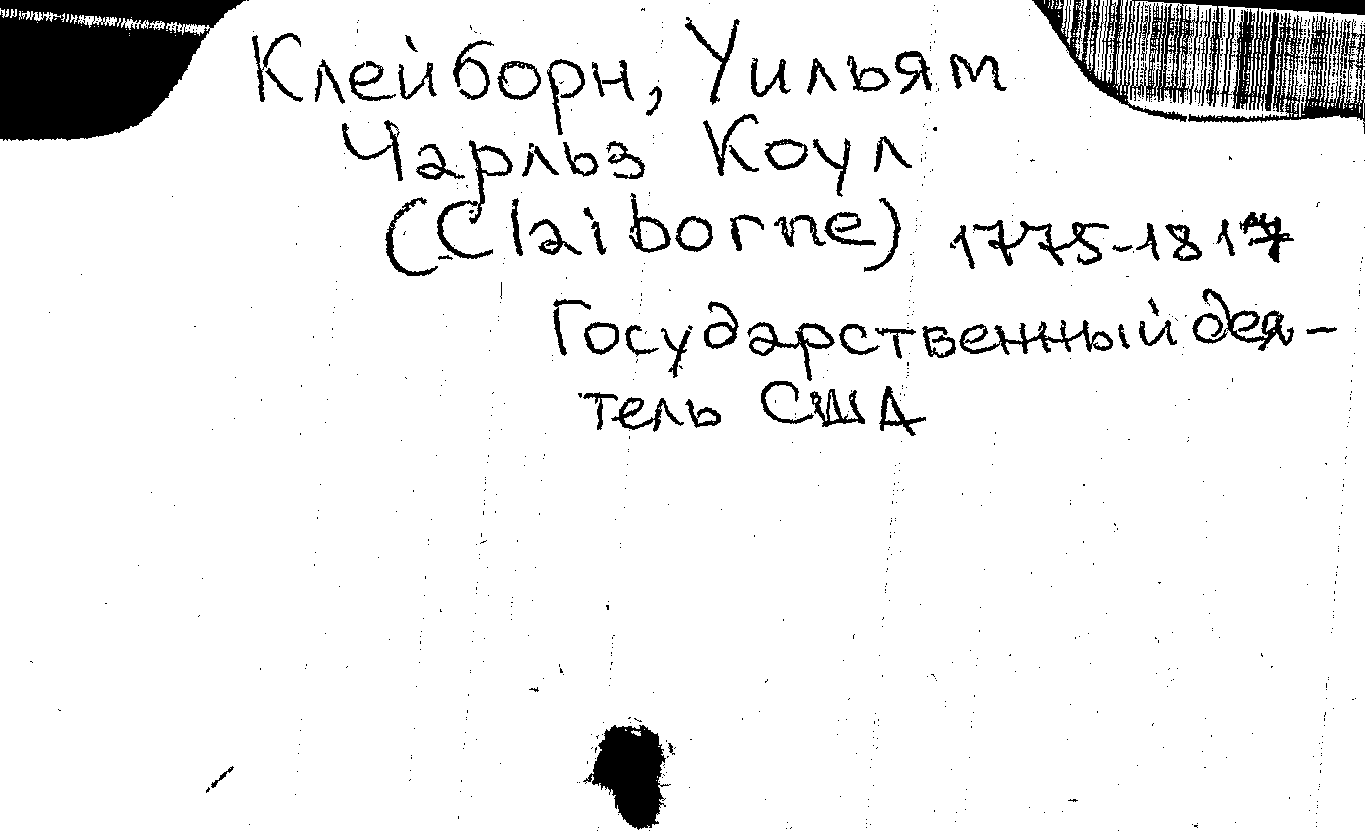 Клейборн, Уильям
Чарльз Коул
(Claiborne) 1775-1817
Государственный дея-
тель США